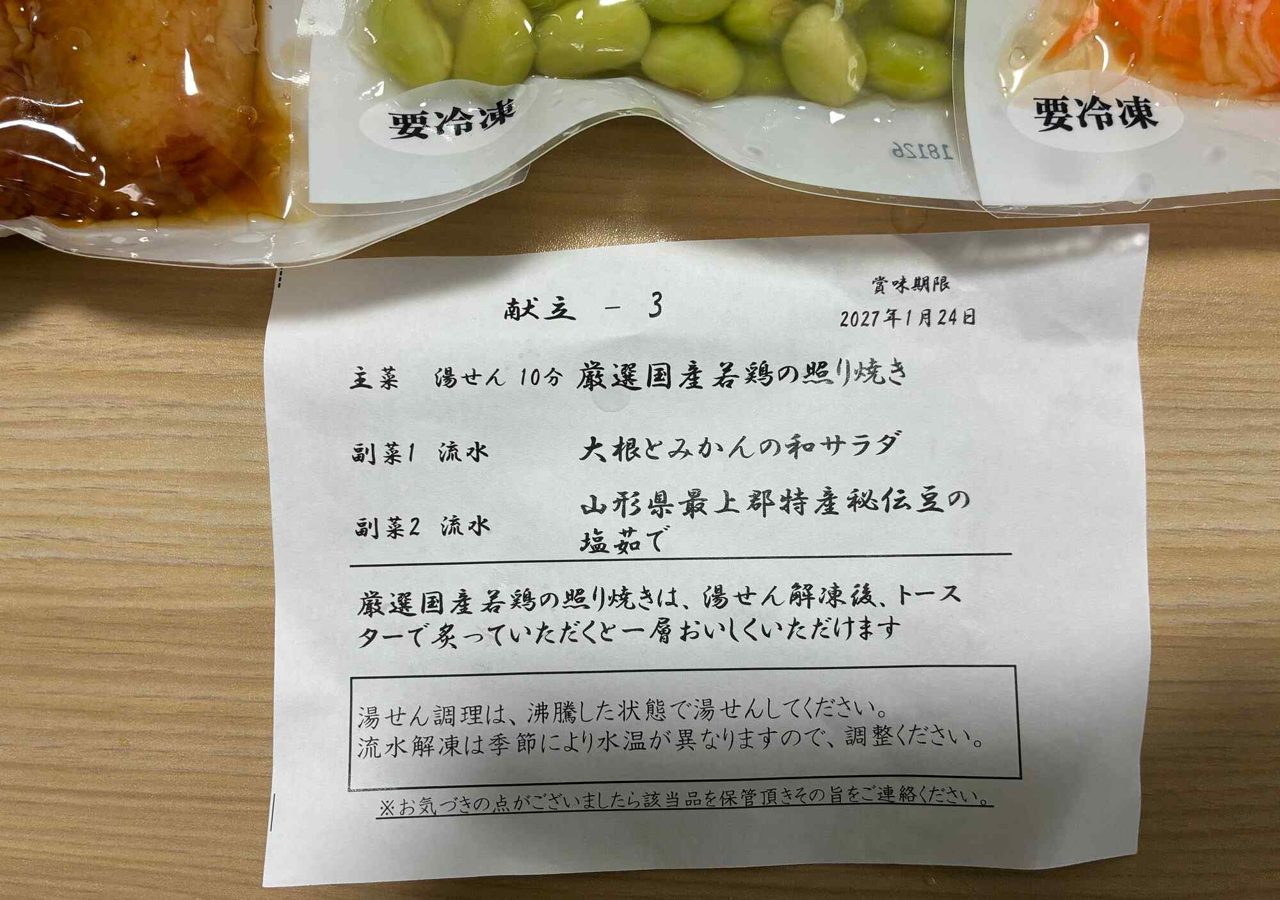 要冷凍
要冷凍
18126
献立 － 3
賞味期限
2027年1月24日
主菜 湯せん 10分 厳選国産若鶏の照り焼き
副菜1 流水 大根とみかんの和サラダ
副菜2 流水 山形県最上郡特産秘伝豆の
塩茹で
厳選国産若鶏の照り焼きは、湯せん解凍後、トース
ターで炙っていただくと一層おいしくいただけます
湯せん調理は、沸騰した状態で湯せんしてください。
流水解凍は季節により水温が異なりますので、調整ください。
※お気づきの点がございましたら該当品を保管頂きその旨をご連絡ください。